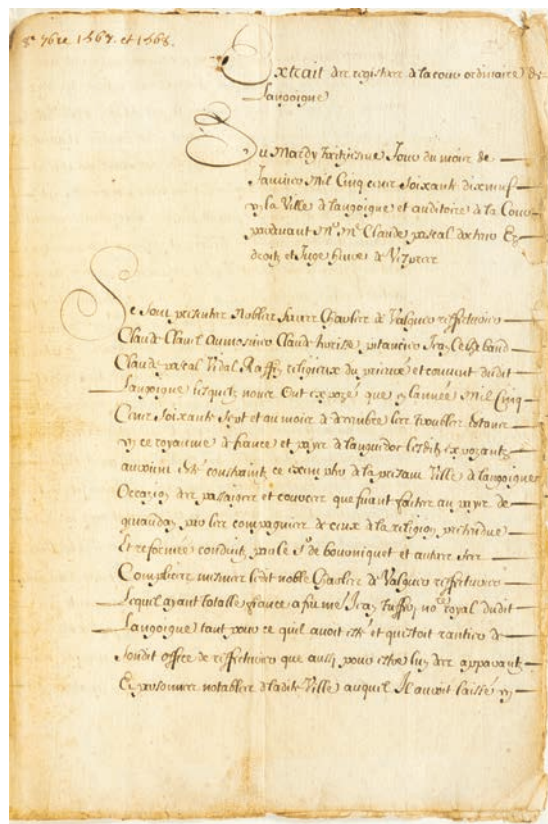 7bre 1567. et 1568.
Extrait des registres de la cour ordinaire de
Langoigne
Du Mardy huitiesme Jour du mois de
Janvier Mil Cinq cens Soixante dix neuf
la Ville de langoigne et auditoire de la Cour
pardevant Mr Me Claude pascal docteur Ez
droitz et Juge
Se sont presentes Nobles freres Charles de Reffecturier
Claude Clavel Aumosnier Claude pitancier Jean
Claude pascal Vidal Raffin religieux du prieuré et couvent dudit
Langoigne lesquels nous Ont exposé que lannée Mil Cinq
Cens Soixante Sept et au mois de decembre les troubles estans
en ce royaume de france et payis de languedoc lesdits exposants
auroint esté constraints de la presant Ville de langoigne
Occasion des passaiges et courses que feurent faites au payis de
par les compagnies de ceux de la religion pretendue
Et reformée conduits par le Sr de et autres ses
Complices mesmes ledit noble Charles de Reffecturier
Lequel ayant Totalle fiance a feu me Jean no.re royal dudit
Langoigne tant pour ce quil avoit esté et questoit rantier de
Sondit office de reffecturier que aussi pour estre luy des apparants
Et personnes notables de ladite Ville auquel Il auroit laissé en